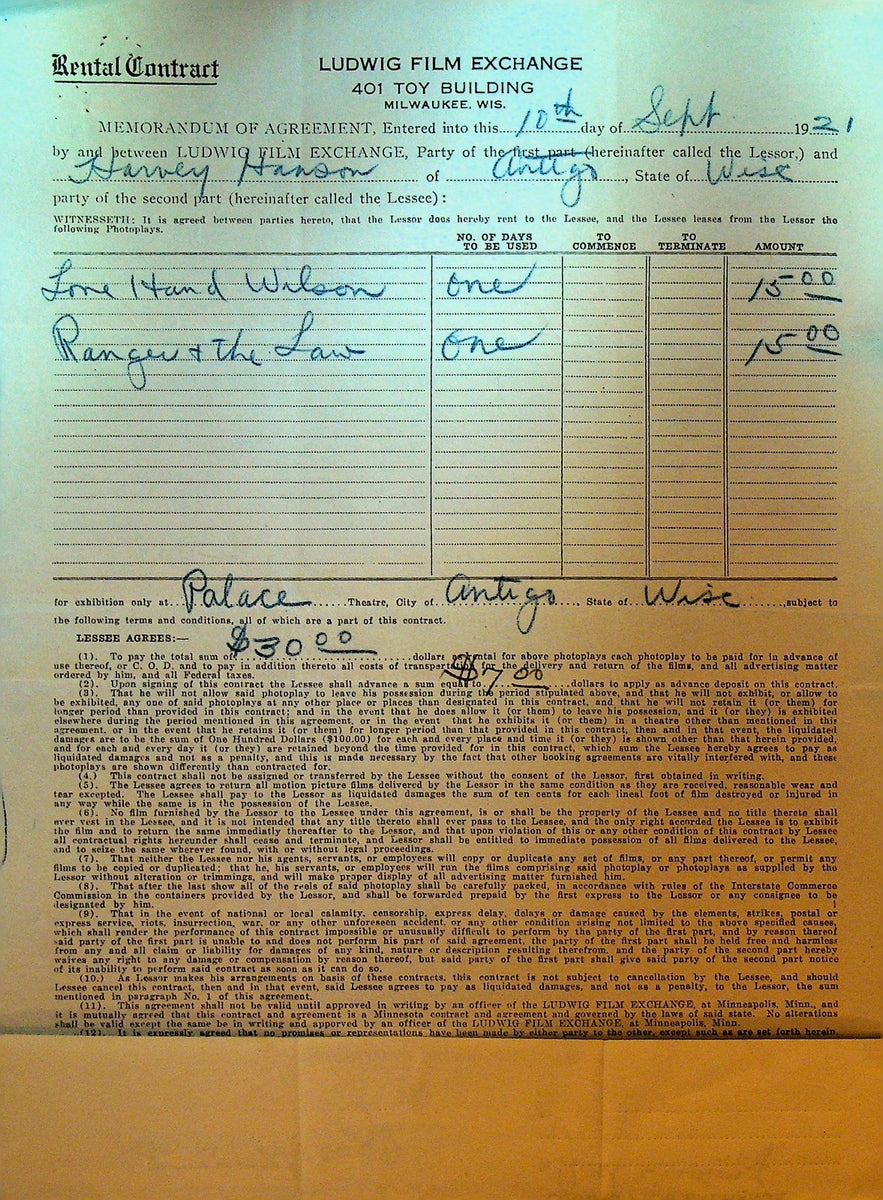 Rental Contract
LUDWIG FILM EXCHANGE
401 TOY BUILDING
MILWAUKEE, WIS.
MEMORANDUM OF AGREEMENT, Entered into this 10th day of Sept 1921
by and between LUDWIG FILM EXCHANGE, Party of the first part (hereinafter called the Lessor,) and
Harvey Hanson of Antigo, State of Wisc
party of the second part (hereinafter called the Lessee):
WITNESSETH: It is agreed between parties hereto, that the Lessor does hereby rent to the Lessee, and the Lessee leases from the Lessor the
following Photoplays.
NO. OF DAYS TO BE USED TO COMMENCE TO TERMINATE AMOUNT
Lone Hand Wilson one 15 00
Ranger & the Law One 15 00
for exhibition only at Palace Theatre, City of Antigo, State of Wisc, subject to
the following terms and conditions, all of which are a part of this contract.
LESSEE AGREES:—
(1). To pay the total sum of $30 00 dollars rental for above photoplays each photoplay to be paid for in advance of
use thereof, or C. O. D. and to pay in addition thereto all costs of transportation for the delivery and return of the films, and all advertising matter
ordered by him, and all Federal taxes.
(2). Upon signing of this contract the Lessee shall advance a sum equal to $7.00 dollars to apply as advance deposit on this contract.
(3). That he will not allow said photoplay to leave his possession during the period stipulated above, and that he will not exhibit, or allow to
be exhibited, any one of said photoplays at any other place or places than designated in this contract, and that he will not retain it (or them) for
longer period than provided in this contract; and in the event that he does allow it (or them) to leave his possession, and it (or they) is exhibited
elsewhere during the period mentioned in this agreement, or in the event that he exhibits it (or them) in a theatre other than mentioned in this
agreement, or in the event that he retains it (or them) for longer period than that provided in this contract, then and in that event, the liquidated
damages are to be the sum of One Hundred Dollars ($100.00) for each and every place and time it (or they) is shown other than that herein provided,
and for each and every day it (or they) are retained beyond the time provided for in this contract, which sum the Lessee hereby agrees to pay as
liquidated damages and not as a penalty, and this is made necessary by the fact that other booking agreements are vitally interfered with, and these
photoplays are shown differently than contracted for.
(4.) This contract shall not be assigned or transferred by the Lessee without the consent of the Lessor, first obtained in writing.
(5). The Lessee agrees to return all motion picture films delivered by the Lessor in the same condition as they are received, reasonable wear and
tear excepted. The Lessee shall pay to the Lessor as liquidated damages the sum of ten cents for each lineal foot of film destroyed or injured in
any way while the same is in the possession of the Lessee.
(6). No film furnished by the Lessor to the Lessee under this agreement, is or shall be the property of the Lessee and no title thereto shall
ever vest in the Lessee, and it is not intended that any title thereto shall ever pass to the Lessee, and the only right accorded the Lessee is to exhibit
the film and to return the same immediatly thereafter to the Lessor, and that upon violation of this or any other condition of this contract by Lessee
all contractual rights hereunder shall cease and terminate, and Lessor shall be entitled to immediate possession of all films delivered to the Lessee,
and to seize the same wherever found, with or without legal proceedings.
(7). That neither the Lessee nor his agents, servants, or employees will copy or duplicate any set of films, or any part thereof, or permit any
films to be copied or duplicated; that he, his servants, or employees will run the films comprising said photoplay or photoplays as supplied by the
Lessor without alteration or trimmings, and will make proper display of all advertising matter furnished him.
(8). That after the last show all of the reels of said photoplay shall be carefully packed, in accordance with rules of the Interstate Commerce
Commission in the containers provided by the Lessor, and shall be forwarded prepaid by the first express to the Lessor or any consignee to be
designated by him.
(9). That in the event of national or local calamity, censorship, express delay, delays or damage caused by the elements, strikes, postal or
express service, riots, insurrection, war, or any other unforeseen accident, or any other condition arising not limited to the above specified causes,
which shall render the performance of this contract impossible or unusually difficult to perform by the party of the first part, and by reason thereof
said party of the first part is unable to and does not perform his part of said agreement, the party of the first part shall be held free and harmless
from any and all claim or liability for damages of any kind, nature or description resulting therefrom, and the party of the second part hereby
waives any right to any damage or compensation by reason thereof, but said party of the first part shall give said party of the second part notice
of its inability to perform said contract as soon as it can do so.
(10.) As Lessor makes his arrangements on basis of these contracts, this contract is not subject to cancellation by the Lessee, and should
Lessee cancel this contract, then and in that event, said Lessee agrees to pay as liquidated damages, and not as a penalty, to the Lessor, the sum
mentioned in paragraph No. 1 of this agreement.
(11). This agreement shall not be valid until approved in writing by an officer of the LUDWIG FILM EXCHANGE, at Minneapolis, Minn., and
it is mutually agreed that this contract and agreement is a Minnesota contract and agreement and governed by the laws of said state. No alterations
shall be valid except the same be in writing and apporved by an officer of the LUDWIG FILM EXCHANGE, at Minneapolis, Minn.
(12). It is expressly agreed that no promises or representations have been made by either party to the other, except such as are set forth herein.